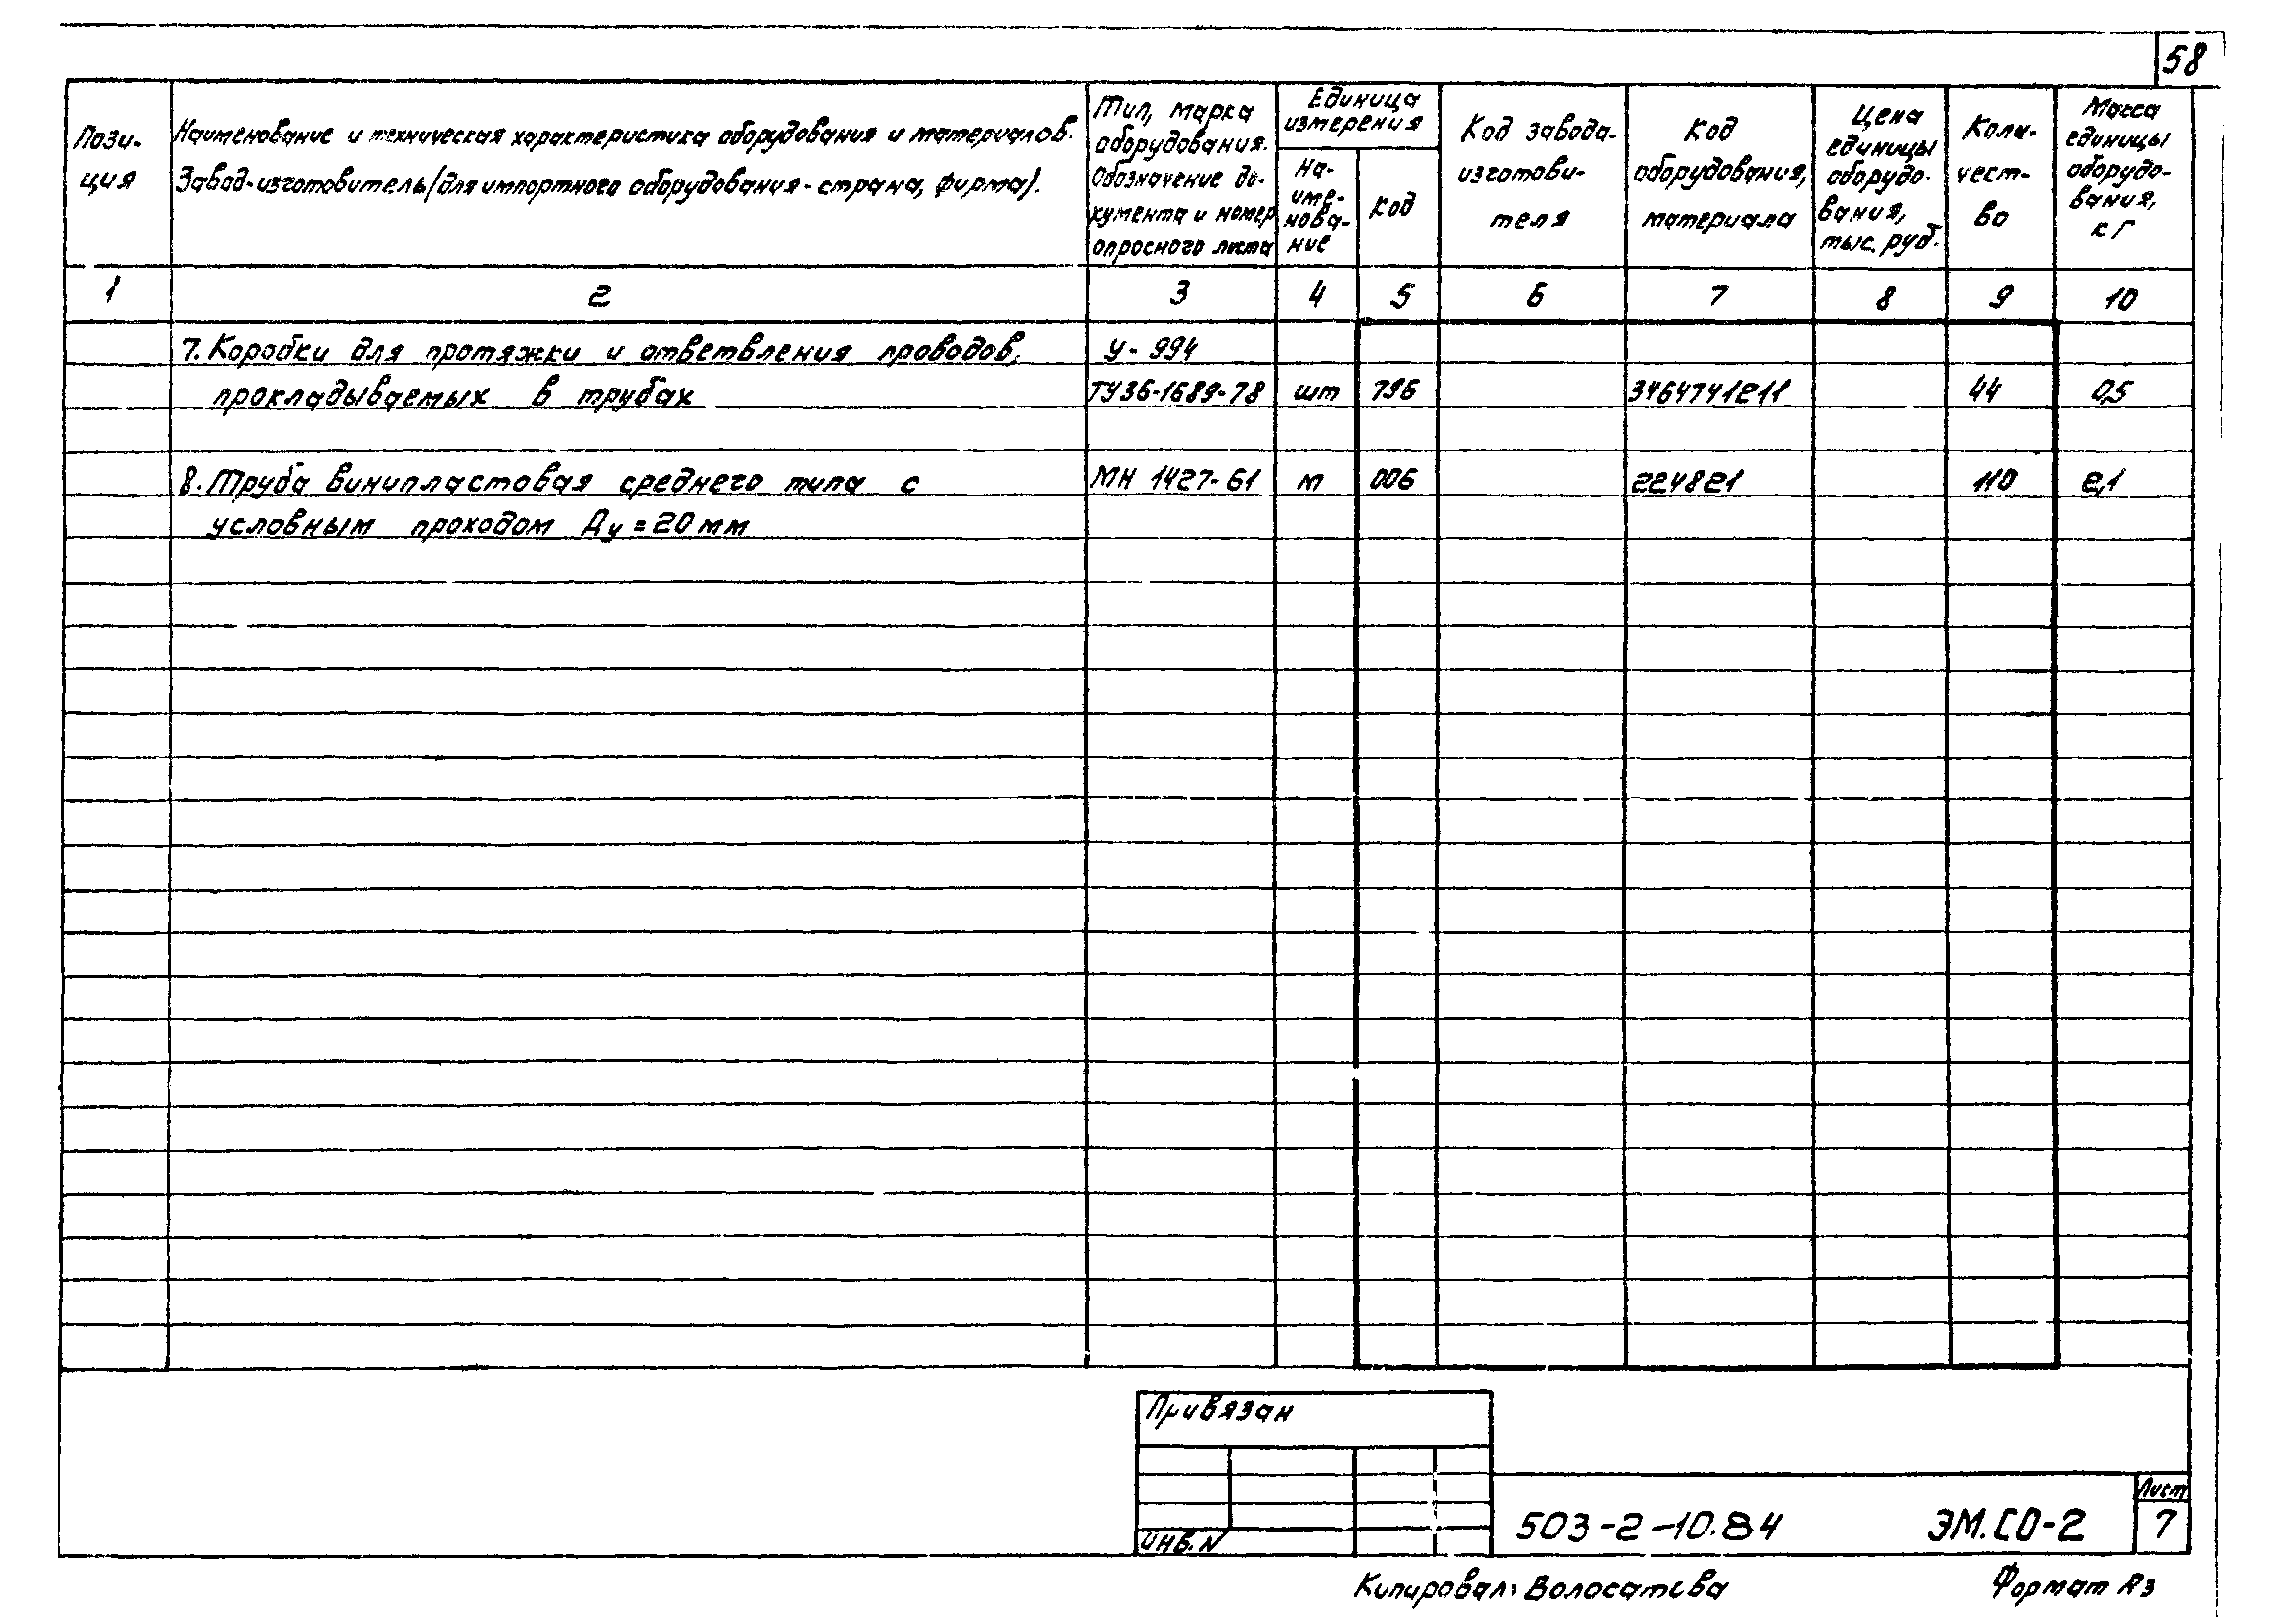 58
Пози-
ция
Наименование и техническая характеристика оборудования и материалов.
Завод-изготовитель (для импортного оборудования - страна, фирма).
Тип, марка
оборудования.
Обозначение до-
кумента и номер
опросного листа
Единица
измерения
На-
име-
нова-
ние
Код
Код завода-
изготови-
теля
Код
оборудования,
материала
Цена
единицы
оборудо-
вания,
тыс. руб.
Коли-
чест-
во
Масса
единицы
оборудо-
вания,
кг
1 2 3 4 5 6 7 8 9 10
7. Коробки для протяжки и ответвления проводов, У-994
прокладываемых в трубах ТУ36-1689-78 шт 796 3464741211 44 0,5
8. Труба винипластовая среднего типа с МН 1427-61 м 006 224821 110 2,1
условным проходом Ду = 20 мм
Привязан
Инв. N
503-2-10.84 ЭМ.СО-2
Лист
7
Копировал: Волосатова Формат А3